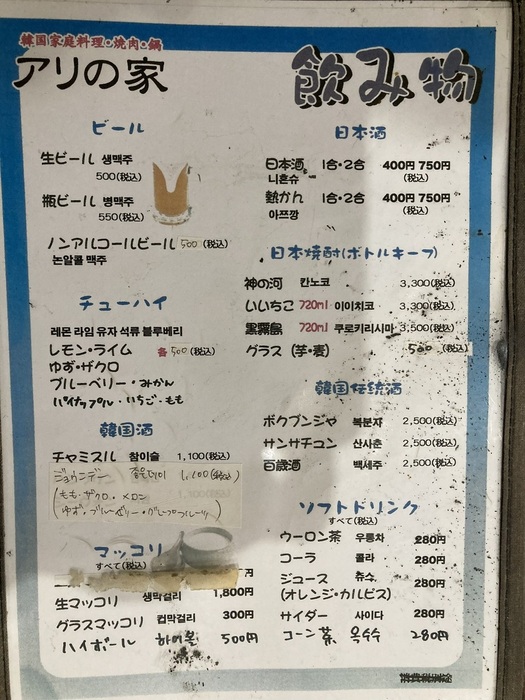 韓国家庭料理・焼肉・鍋
アリの家
飲み物
ビール
生ビール 생맥주
500(税込)
瓶ビール 병맥주
550(税込)
ノンアルコールビール 500 (税込)
논알콜 맥주
チューハイ
레몬 라임 유자 석류 블루베리
レモン・ライム 各500(税込)
ゆず・ザクロ
ブルーベリー・みかん
パイナップル・いちご・もも
韓国酒
チャミスル 참이슬 1,100(税込)
ジョウンデー 좋은데이 1,100(税込)
(もも・ザクロ・メロン
ゆず・ブルーベリー・グレープフルーツ)
マッコリ
すべて(税込)
生マッコリ 생막걸리 1,800円
グラスマッコリ 컵막걸리 300円
ハイボール 하이볼 500円
日本酒
日本酒 1合・2合 400円 750円
니혼슈 (税込)
熱かん 1合・2合 400円 750円
아쯔깡 (税込)
日本焼酎(ボトルキープ)
神の河 칸노코 3,300(税込)
いいちこ 720ml 이이치코 3,300(税込)
黒霧島 720ml 쿠로키리시마 3,500(税込)
グラス (芋・麦) 500 (税込)
韓国伝統酒
ボクブンジャ 복분자 2,500(税込)
サンサチュン 산사춘 2,500(税込)
百歳酒 백세주 2,500(税込)
ソフトドリンク
すべて(税込)
ウーロン茶 우롱차 280円
コーラ 콜라 280円
ジュース 쥬수 280円
(オレンジ・カルピス)
サイダー 사이다 280円
コーン茶 옥수수 280円